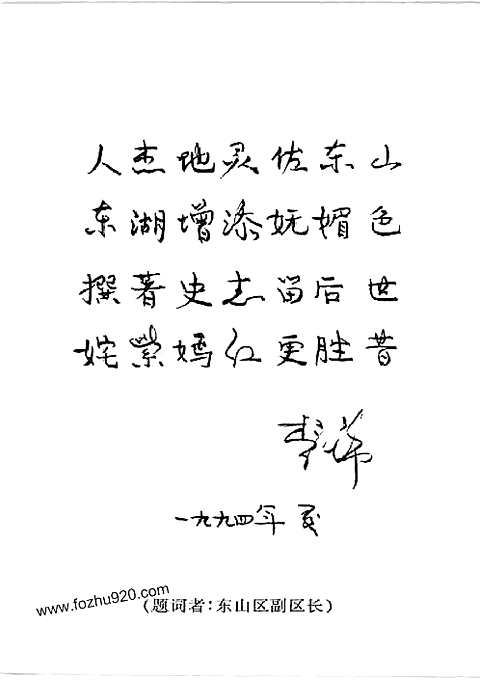 人杰地灵佐东山
东湖增添妩媚色
撰著史志留后世
姹紫嫣红更胜昔
一九九四年夏
www.fozhu920.com
(题词者:东山区副区长)